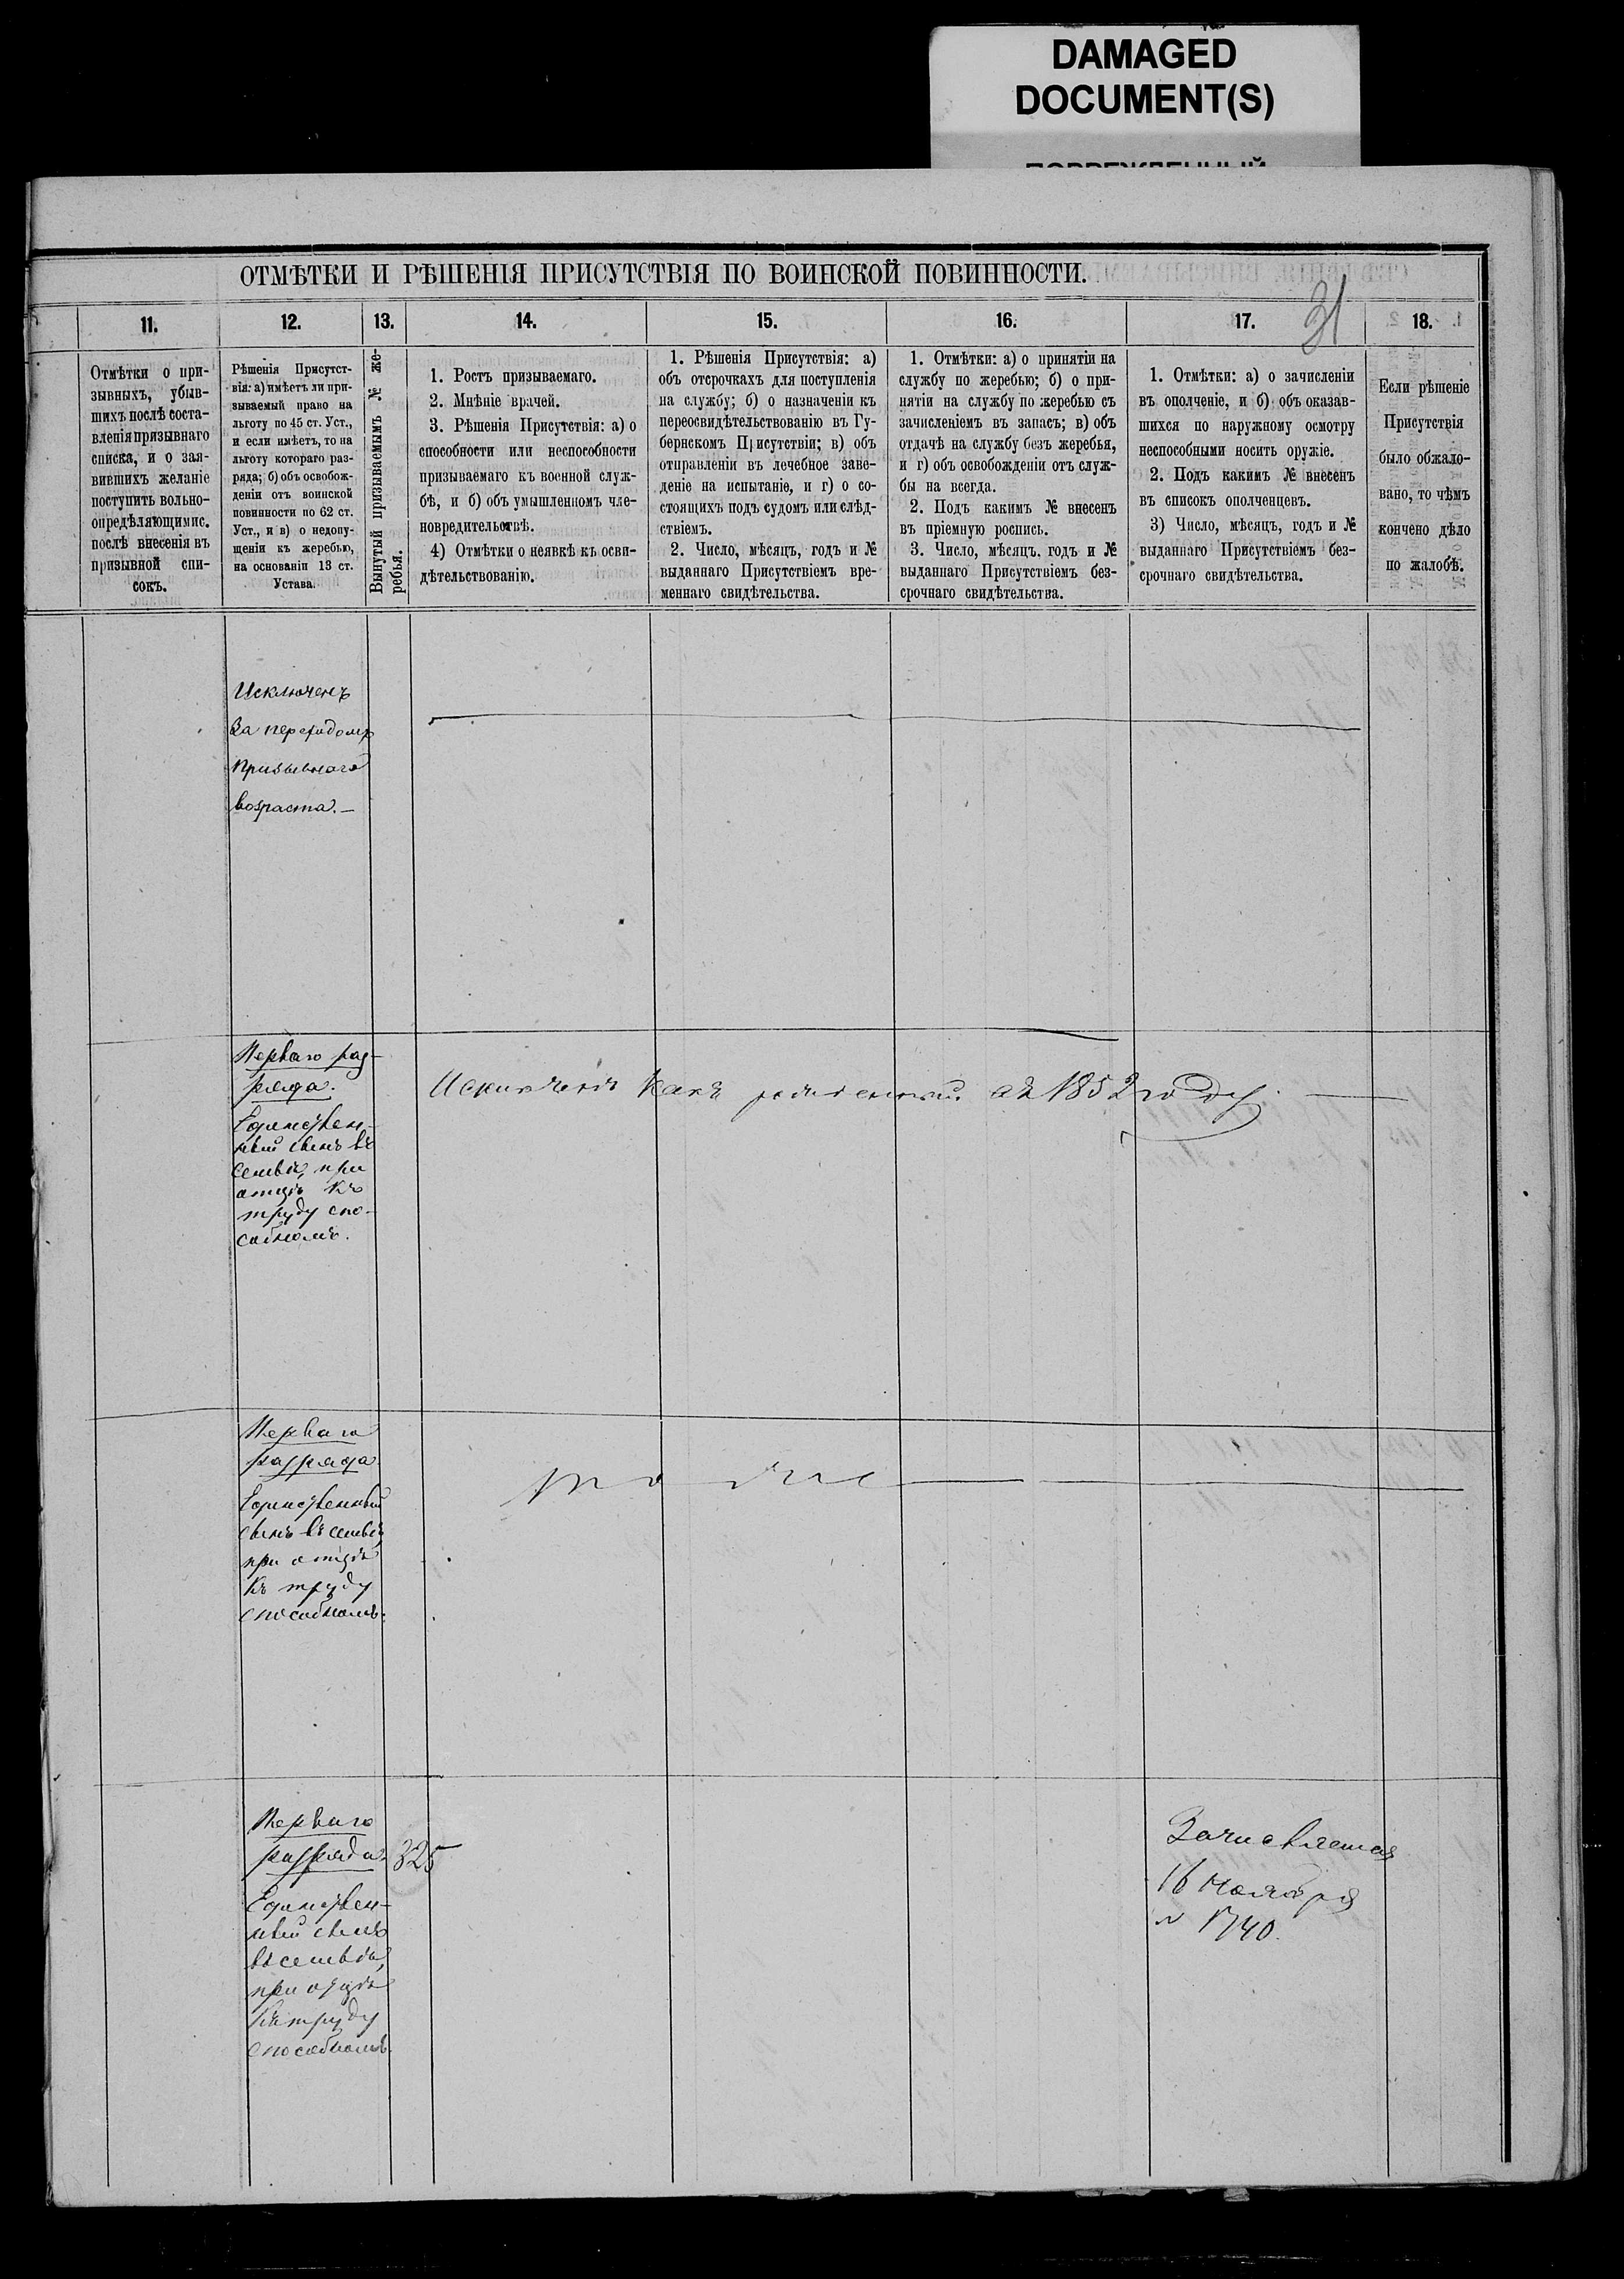 DAMAGED
DOCUMENT(S)
ПОВРЕЖДЕННЫЙ
ОТМѢТКИ И РѢШЕНІЯ ПРИСУТСТВІЯ ПО ВОИНСКОЙ ПОВИННОСТИ.
31
11.
12.
13.
14.
15.
16.
17.
18.
Отмѣтки о при-
зывныхъ, убыв-
шихъ послѣ соста-
вленія призывнаго
списка, и о зая-
вившихъ желаніе
поступить вольно-
опредѣляющимис.
послѣ внесенія въ
призывной спи-
сокъ.
Рѣшенія Присутст-
вія: а) имѣетъ ли при-
зываемый право на
льготу по 45 ст. Уст.,
и если имѣетъ, то на
льготу котораго раз-
ряда; б) объ освобож-
деніи отъ воинской
повинности по 62 ст.
Уст., и в) о недопу-
щеніи къ жеребью,
на основаніи 13 ст.
Устава.
Вынутый призываемымъ № же-
ребья.
1. Ростъ призываемаго.
2. Мнѣніе врачей.
3. Рѣшенія Присутствія: а) о
способности или неспособности
призываемаго къ военной служ-
бѣ, и б) объ умышленномъ чле-
новредительствѣ.
4) Отмѣтки о неявкѣ къ осви-
дѣтельствованію.
1. Рѣшенія Присутствія: а)
объ отсрочкахъ для поступленія
на службу; б) о назначеніи къ
переосвидѣтельствованію въ Гу-
бернскомъ Присутствіи; в) объ
отправленіи въ лечебное заве-
деніе на испытаніе, и г) о со-
стоящихъ подъ судомъ или слѣд-
ствіемъ.
2. Число, мѣсяцъ, годъ и №
выданнаго Присутствіемъ вре-
меннаго свидѣтельства.
1. Отмѣтки: а) о принятіи на
службу по жеребью; б) о при-
нятіи на службу по жеребью съ
зачисленіемъ въ запасъ; в) объ
отдачѣ на службу безъ жеребья,
и г) объ освобожденіи отъ служ-
бы на всегда.
2. Подъ какимъ № внесенъ
въ пріемную роспись.
3. Число, мѣсяцъ, годъ и №
выданнаго Присутствіемъ без-
срочнаго свидѣтельства.
1. Отмѣтки: а) о зачисленіи
въ ополченіе, и б) объ оказав-
шихся по наружному осмотру
неспособными носить оружіе.
2. Подъ какимъ № внесенъ
въ списокъ ополченцевъ.
3) Число, мѣсяцъ, годъ и №
выданнаго Присутствіемъ без-
срочнаго свидѣтельства.
Если рѣшеніе
Присутствія
было обжало-
вано, то чѣмъ
кончено дѣло
по жалобѣ.
Исключенъ
за переходомъ
призывнаго
возраста.—
Перваго раз-
ряда.
Единствен-
ный сынъ въ
семьѣ, при
отцѣ къ
труду спо-
собномъ.
Исключенъ какъ родившійся въ 1852 году.
Перваго
разряда
Единственный
сынъ въ семьѣ,
при отцѣ
къ труду
способномъ.
тоже
Перваго
разряда.
Единствен-
ный сынъ
въ семьѣ,
при отцѣ
къ труду
способномъ.
325
Зачисляется
16 Ноября
№ 1740.